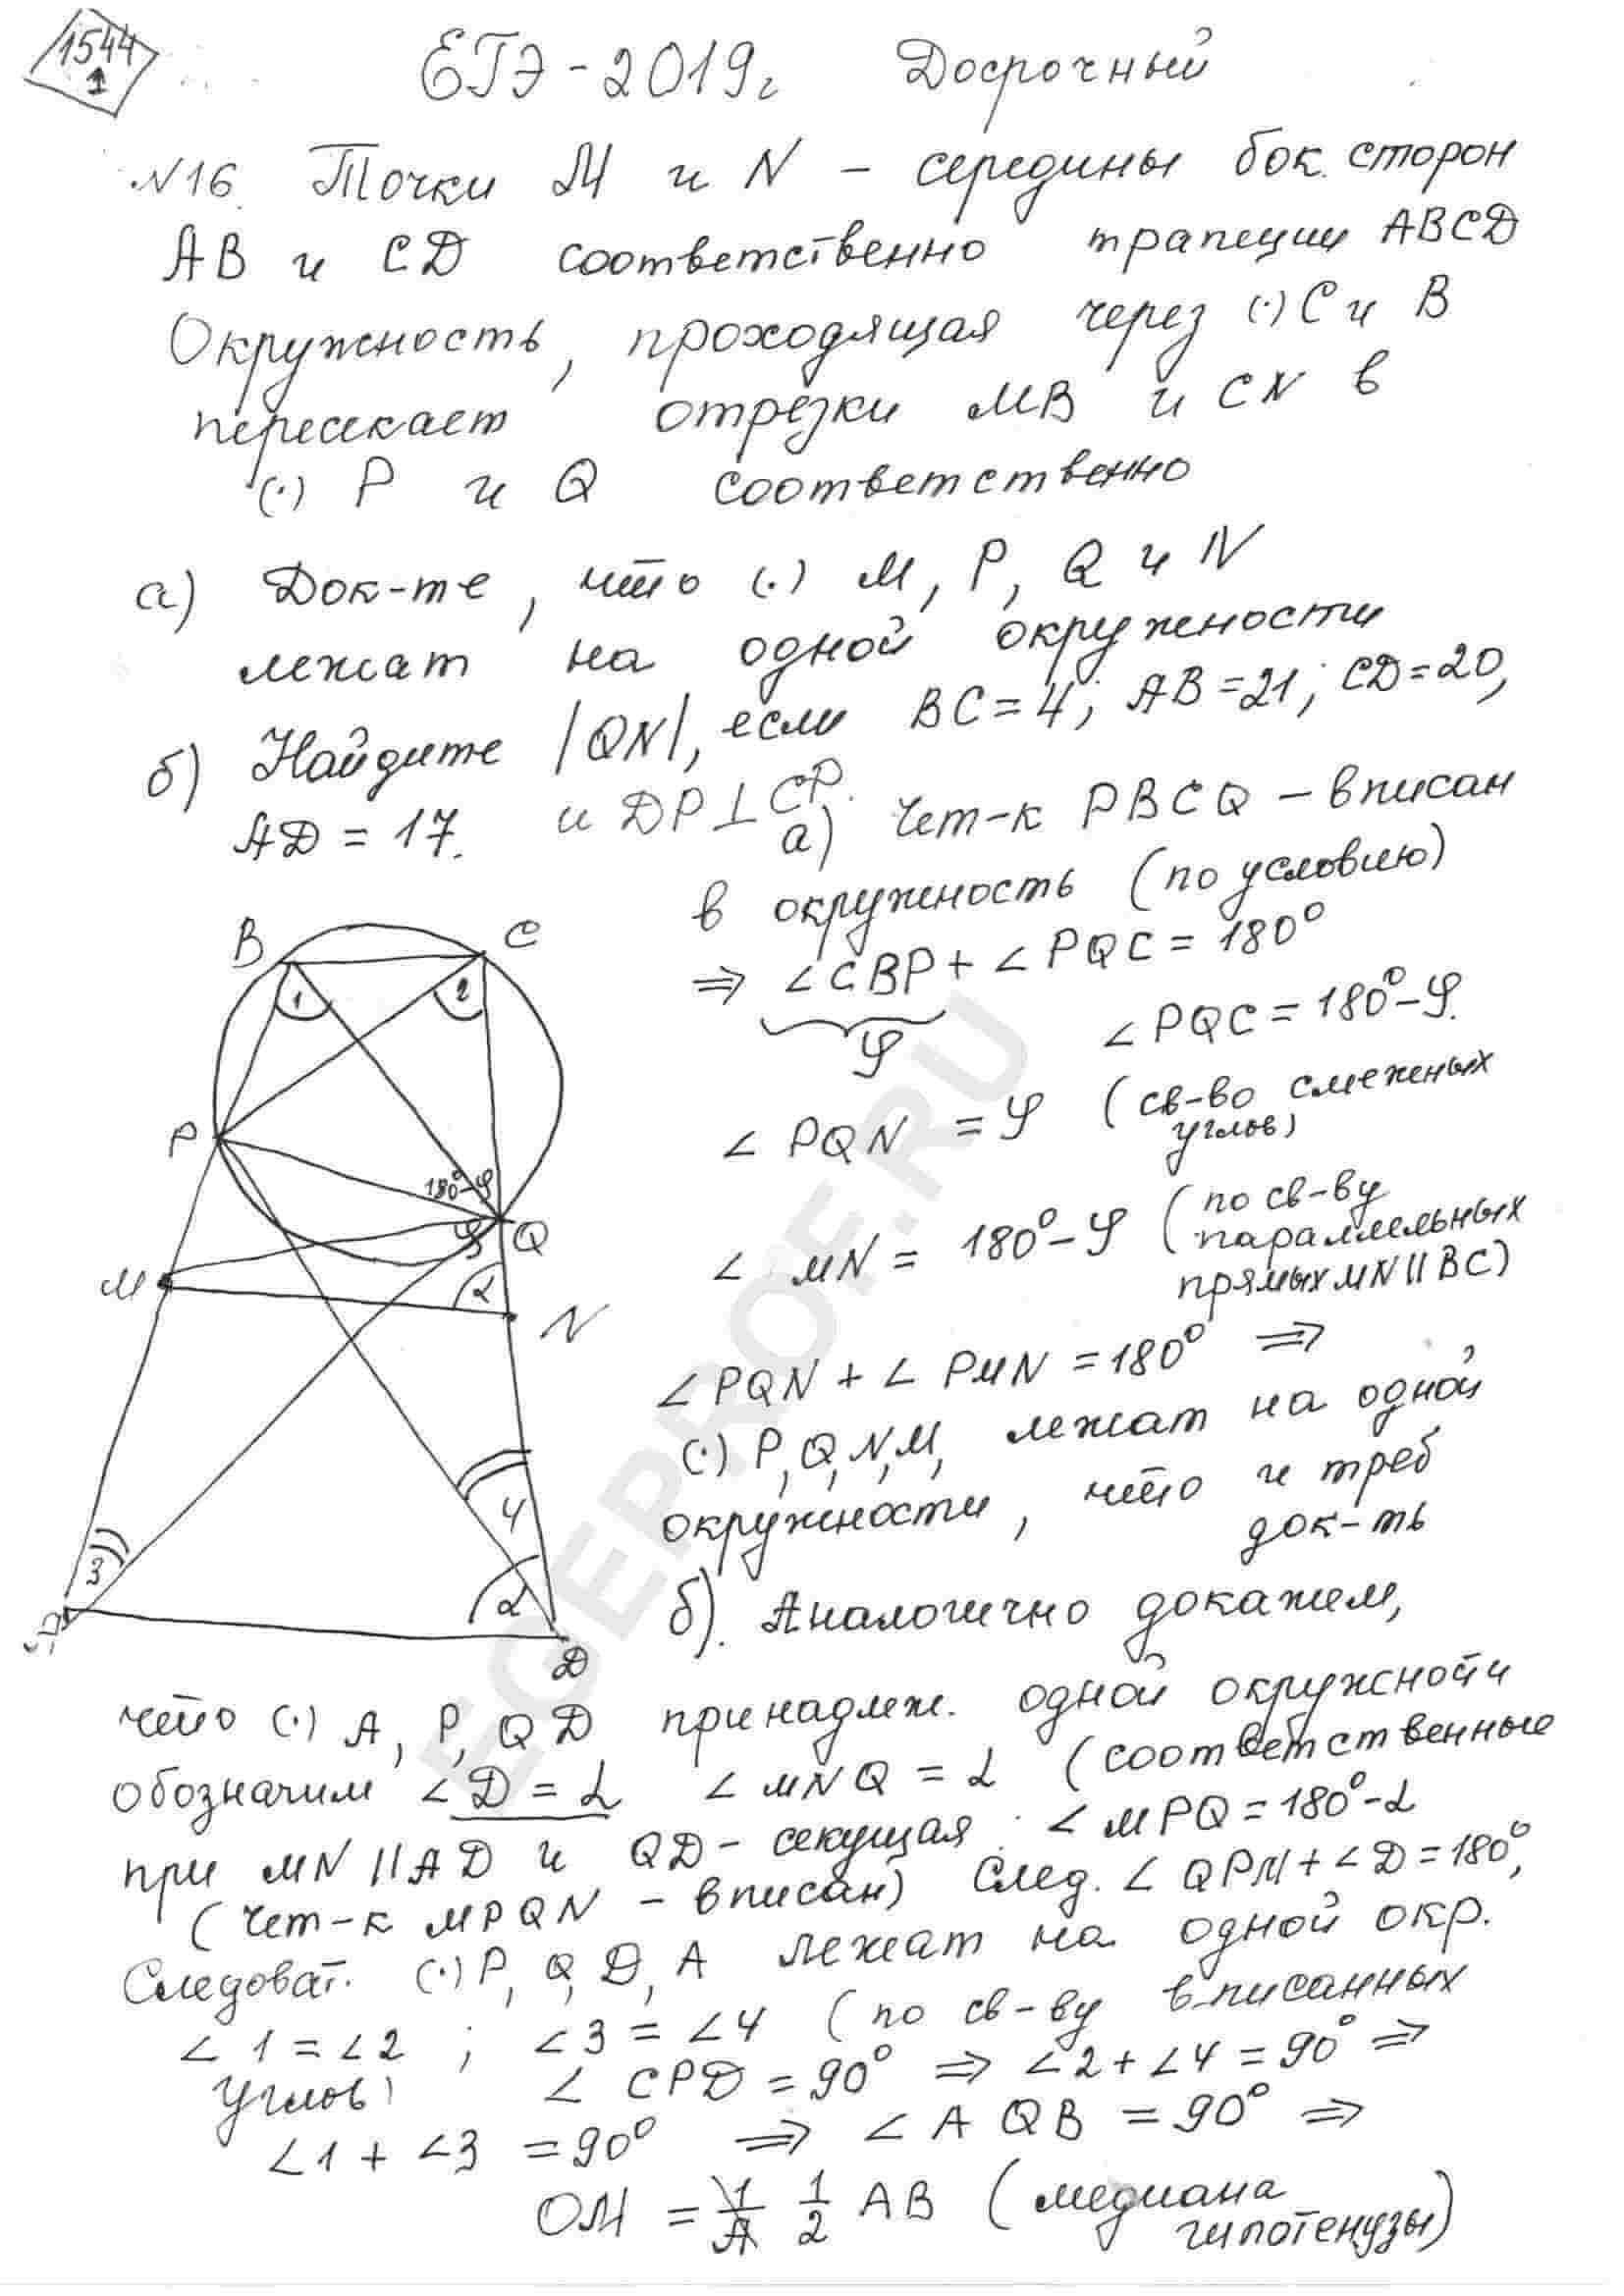 1544
1
ЕГЭ-2019г Досрочный
N16. Точки M и N – середины бок. сторон
AB и CD соответственно трапеции ABCD
Окружность, проходящая через (·) C и B
пересекает отрезки MB и CN в
(·) P и Q соответственно
а) Док-те, что (·) M, P, Q и N
лежат на одной окружности
б) Найдите |QN|, если BC=4; AB=21; CD=20,
AD = 17. и DP⊥CP.
а) Чет-к PBCQ – вписан
в окружность (по условию)
⇒ ∠CBP + ∠PQC = 180°
φ
∠PQC = 180°-φ.
∠ PQN = φ (св-во смежных
углов)
∠ MN = 180°-φ (по св-ву
параллельных
прямых MN || BC)
∠PQN + ∠ PMN = 180° ⇒
(·) P, Q, N, M, лежат на одной
окружности, что и треб
док-ть
B C
1 2
P
180°-φ
φ Q
M α
N
4
3
α
A
D
б). Аналогично докажем,
что (·) A, P, Q D принадлеж. одной окружнойи
обозначим ∠D = α ∠MNQ = α (соответственные
при MN || AD и QD – секущая. ∠MPQ = 180°-α
(чет-к MPQN – вписан) След. ∠QPM + ∠D = 180°,
Следоват. (·) P, Q, D, A лежат на одной окр.
∠1 = ∠2 ; ∠3 = ∠4 (по св-ву вписанных
углов) ∠ CPD = 90° ⇒ ∠2 + ∠4 = 90° ⇒
∠1 + ∠3 = 90° ⇒ ∠ A Q B = 90° ⇒
QM = 1/2 AB (медиана
гипотенузы)
EGEPROF.RU